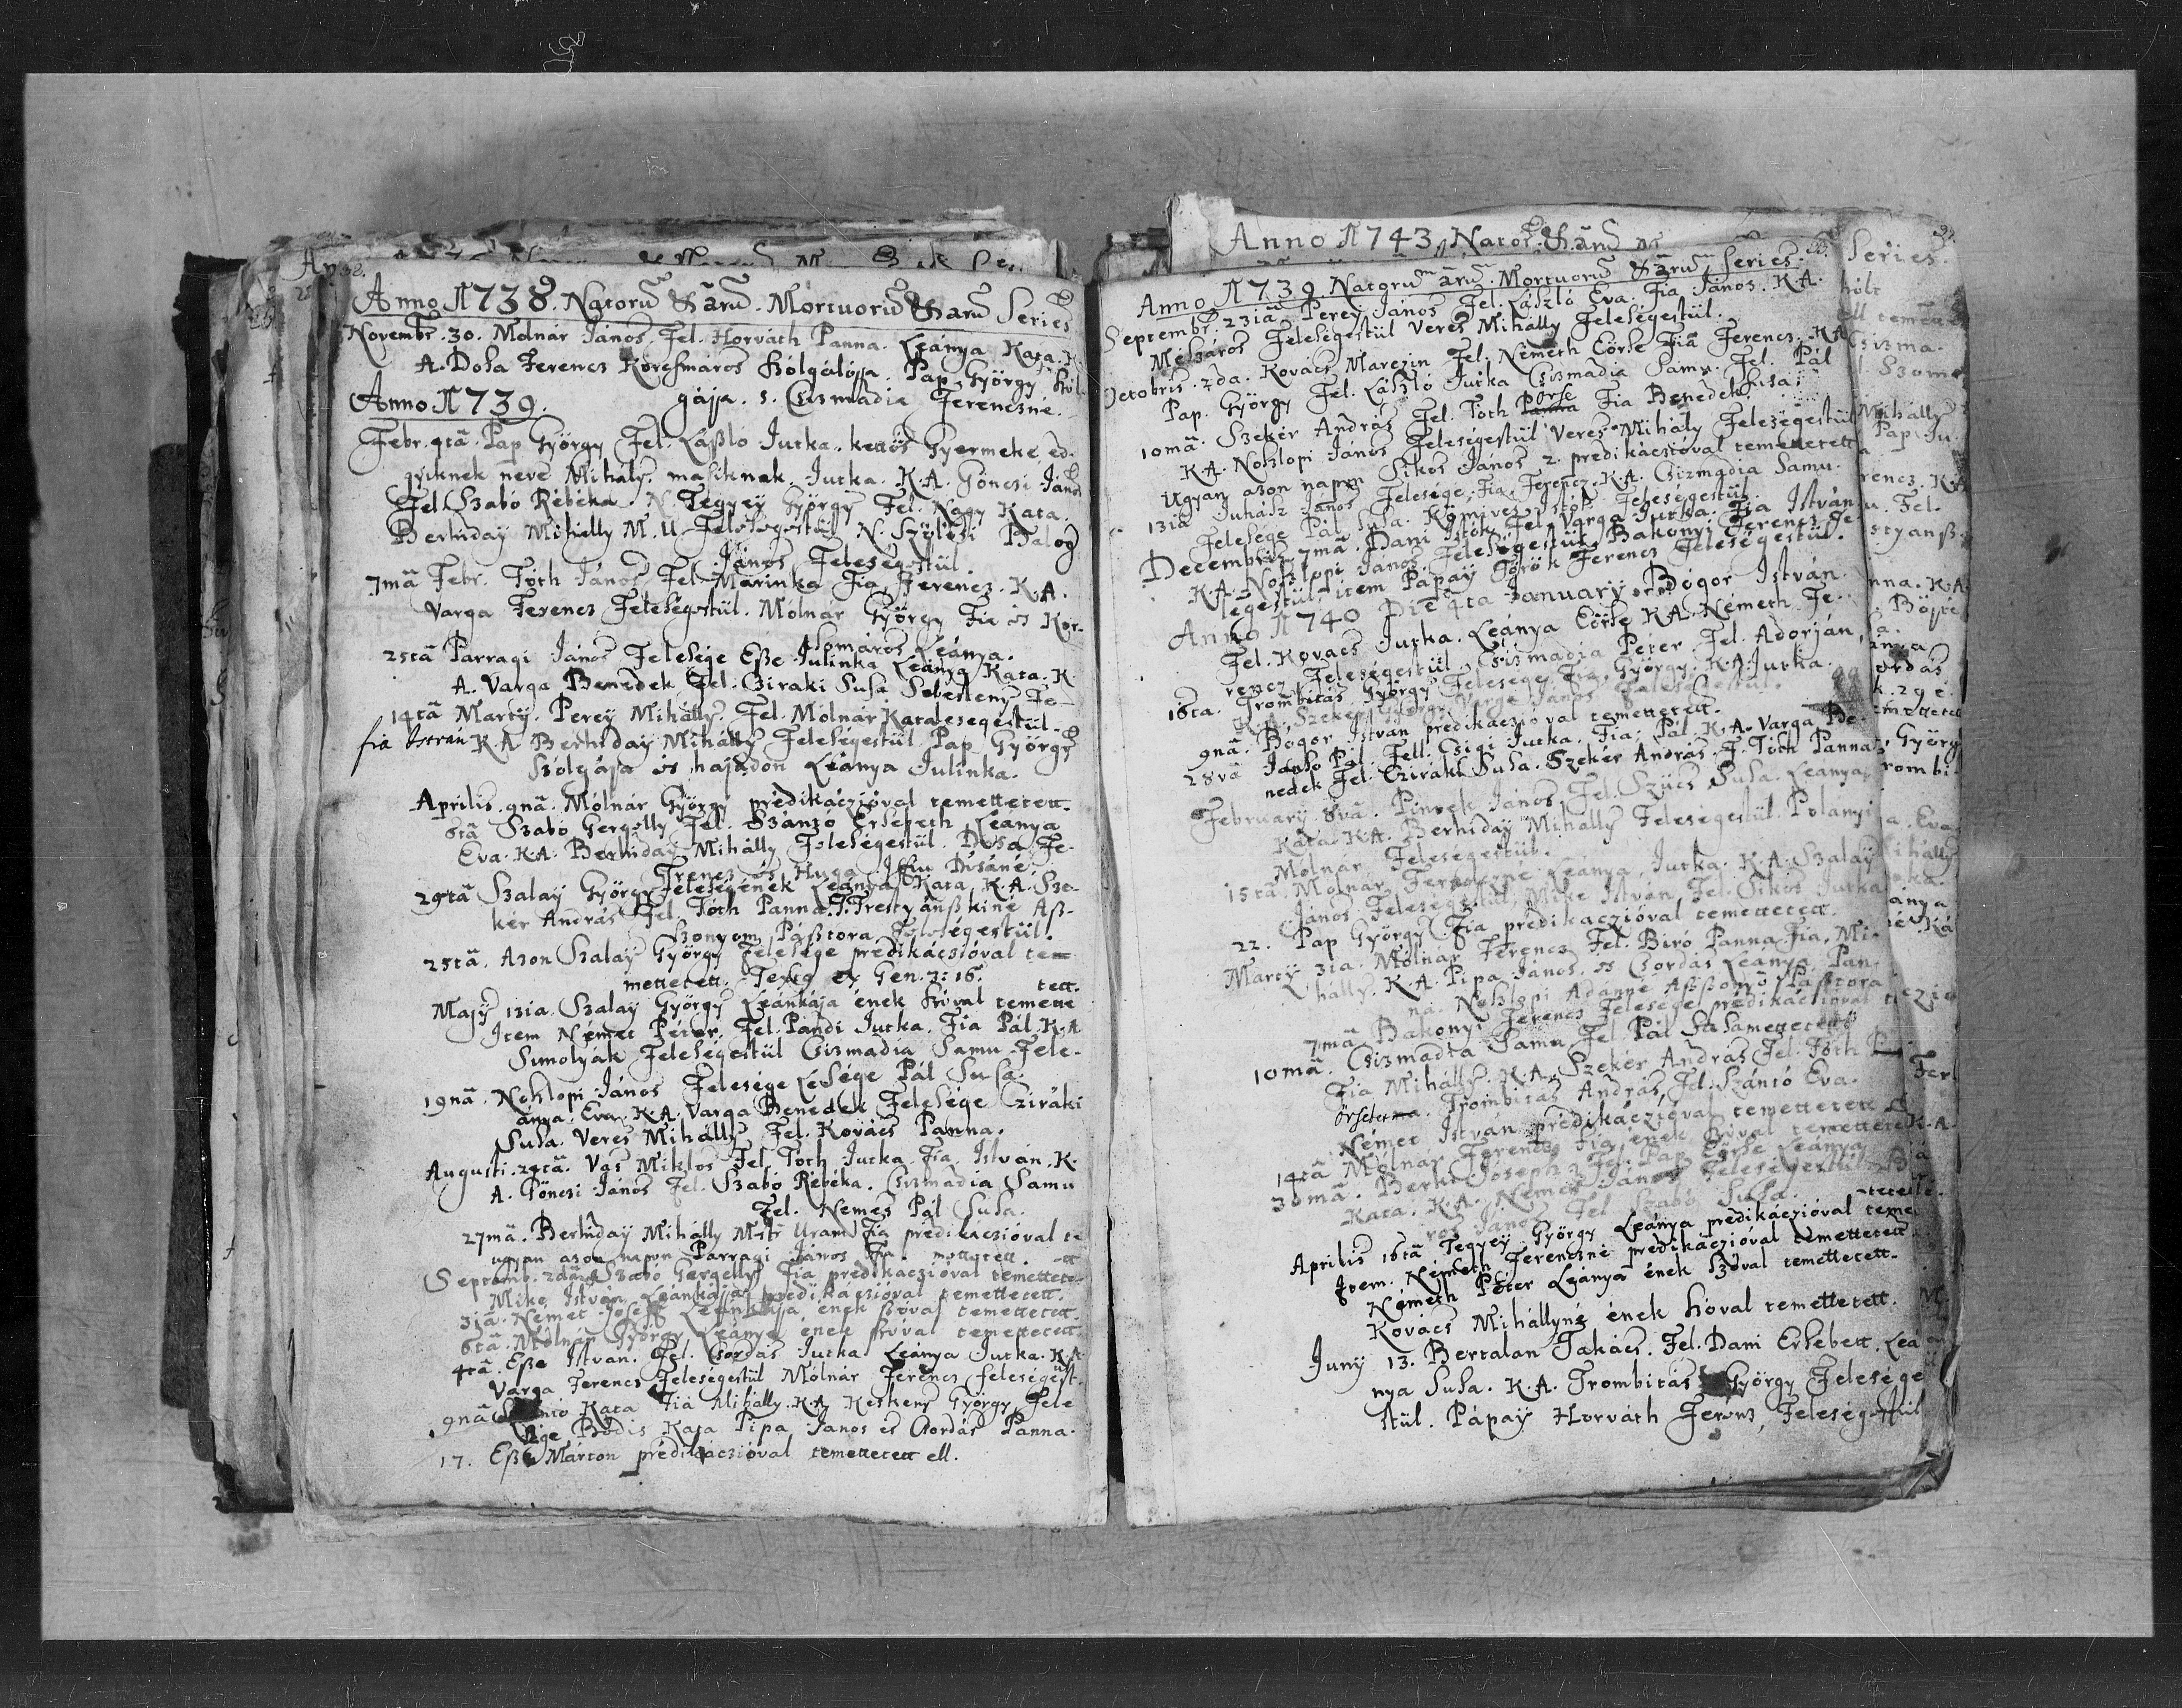 32.
Anno 1738. Natoru &aru. Mortuoru &aru Series
Novembr. 30. Molnár János. Fel. Horváth Panna. Leánya Kata. K.
A. Dosa Ferencz Korcsmáros Szólgálója. Pap György Szól-
gája. s. Csizmadia Ferenczné.
Anno 1739.
Febr. 9tā. Pap György Fel. Laßló Jutka. kettős Gyermeke ed-
gyiknek neve Mihály. masiknak. Jutka. K.A. Gönczi János
Fel Szabó Rébéka. N. Tegyey György Fel. Nagy Kata.
Berhiday Mihálly M. U. Feleségestül N. Szölösi Balog
János Feleségestül.
7mā Febr. Tóth János Fel. Marinka Fia Ferencz. K.A.
Varga Ferencz Feleségestül. Mólnár György Fia és Kor-
somáros Leánya.
25tā Parragi János Felesége Eße Julinka Leánya Kata. K.
A. Varga Benedek Fel. Cziraki Susa Sebesteny Fe-
14tā Marty. Perey Mihálly. Fel. Mólnár Kata lesegestül.
fia István K.A Berhiday Mihálly Feleségestül Pap György
Szolgája és hajadon Leánya Julinka.
Aprilis. 9nā. Mólnár György prédikáczióval temettetett.
6tā Szabó Gergelly Fel. Szánzó Ersebeth Leánya
Eva. K.A. Berhiday Mihálly Feleségestül. Dosa Fe-
rencz és Huga Ifiu Dosáné.
29tā Szalaÿ György Feleségének Leánya Kata K.A. Sze-
kér András Fel Tóth Panna. T. Trestyánßkiné Aß-
szonyom Páßtora Feleségestül.
25tā. Azon Szalaÿ György Felesége prédikáczióval tem
mettetett. Textq ex Gen. 3: 16.
tett.
Majÿ 13ia. Szalaÿ György Leánkája ének szóval temette
Item Német Péter. Fel. Pándi Jutka. Fia Pál. K.A
Simolyák Feleségestül Csizmadia Samu Fele-
sége Pál Susa.
19nā. Noszlopi János Felesége Le
ánya. Eva. K.A. Varga Benedek Felesége Cziráki
Susa. Veres Mihálly Fel. Kovács Panna.
Augusti. 24tā. Vas Miklos Fel Toth Jutka. Fia István. K.
A. Gönczi János Fel. Szabó Rébéka. Csizmadia Samu
Fel. Nemes Pál Susa.
27mā. Berhiday Mihálly Mstr Uram Fia prédikáczióval te
ugyan azon napon Parragi János Fia. mettetett. -tt
Septemb. 2dā Szabó Gergelly Fia prédikáczióval temettete-
Mike István Leánkája prédikáczióval temettetett.
3iā. Német Josef Leánkája ének szóval temettetett.
6tā. Mólnár György Leánya ének szóval temettetett.
4tā. Eße István. Fel. Csordás Jutka Leánya Jutka. K.A
Varga Ferencz Feleségestül Mólnár Ferencz feleségest-
ül
9nā Kata Fia Mihálly. K.A. Keskeny György Fele
sége Bódis Kata Pipa János és Csordás Panna.
17. Eße Márton prédikáczióval temettetett ell.
Anno 1743. Natoŕ. &arū
Anno 1739. Natoru aru. Mortuoru &aru Series. 33.
Septembr. 23iā Perey János Fel. László Eva. Fia János. K.A.
Mészáros Feleségestül Veres Mihálly Feleségestül.
Octobris. 2da. Kovács Marczin Fel. Németh Eörse Fiā Ferencz. K.A
Pap. György Fel. László Jutka Csizmadia Samu. Fel. Pál
Susa.
10mā. Szekér András Fel. Toth Panna Fia Benedek.
Örse
K.A. Noszlopi János Feleségestül Veres Mihály Feleségestül
Ugyan azon napon Sikos János 2. predikácziόval temettetett
13iā Juhász János Felesége. Fia. Ferencz. K.A. Csizmadia Samu.
Felesége Pál Susa. Kömives Istók Feleségestül.
Decembris 7mā. Dani Istók Fel. Varga Jutka. Fia István
K.A. Noszlopi János Feleségestül. Bakonyi Ferencz Fe
legestül, item Pápaÿ Török Ferencz Feleségestül.
Anno 1740 Die 4ta January Bógor István
Fel. Kovács Jutka. Leánya Eörse K.A. Németh Fe-
rencz Feleségestül Csizmadia Péter. Fel. Adorján
16ta. Trombitás György Felesége Fia. György. K.A. Jutka.
K.A. Szekér György Varga János Feleségestül.
9nā. Bógor István prédikáczióval temettetett.
28vā Jankó Pál Fell. Csigi Jutka. Fia. Pál. K.A. Varga Be-
nedek Fel. Cziráki Susa. Szekér András. F. Tóth Panna
Februarÿ. 8vā. Pintek János Fel. Szücs Susa. Leanya
Kata. K.A. Berhiday Mihálly Feleségestül. Polanyi
Mólnár Feleségestül.
15tā. Mólnár Ferenczné Leánya, Jutka. K.A. Szalaÿ
János Feleségestül, Mike István Fel. Sikos Jutka
22. Pap György Fia prédikáczióval temettetett.
Martÿ 3ia. Mólnár Ferencz Fel. Biró Panna Fia. Mi-
hálly. K.A. Pipa János. és Csordás Leánya Pan-
na. Noszlopi Adánné Aßßonyō Páßtora
7mā Bakonyi Ferencz Felesége prédikáczióval te
mettetett
10mā. Csizmadia Samu Fel. Pál Susa
Fia Mihálly. K.A. Szekér András Fel. Tóth
Örse Trombitás András, Fel. Szánzó Eva.
Német István prédikáczióval temettetett
14tā Mólnár Ferencz Fia ének szóval temettetett
30mā. Berki Jóseph Fel. Pap Eörse Leánya
Kata. K.A. Német János Feleségestül
János Fel Szabó Susa.
-tetett.
Aprilis 16tā Tegyeÿ György Leánya prédikáczióval teme
Item. Németh Ferenczné prédikáczióval temettetett.
Németh Péter Leánya ének Szóval temettetett.
Kovács Mihállyné ének szóval temettetett.
Juny 13. Bertalan Takács. Fel. Dani Ersebett. Leá
nya Susa. K.A. Trombitás György Felesége
stül. Pápaÿ Horváth Ferencz, Feleségestül
Series.